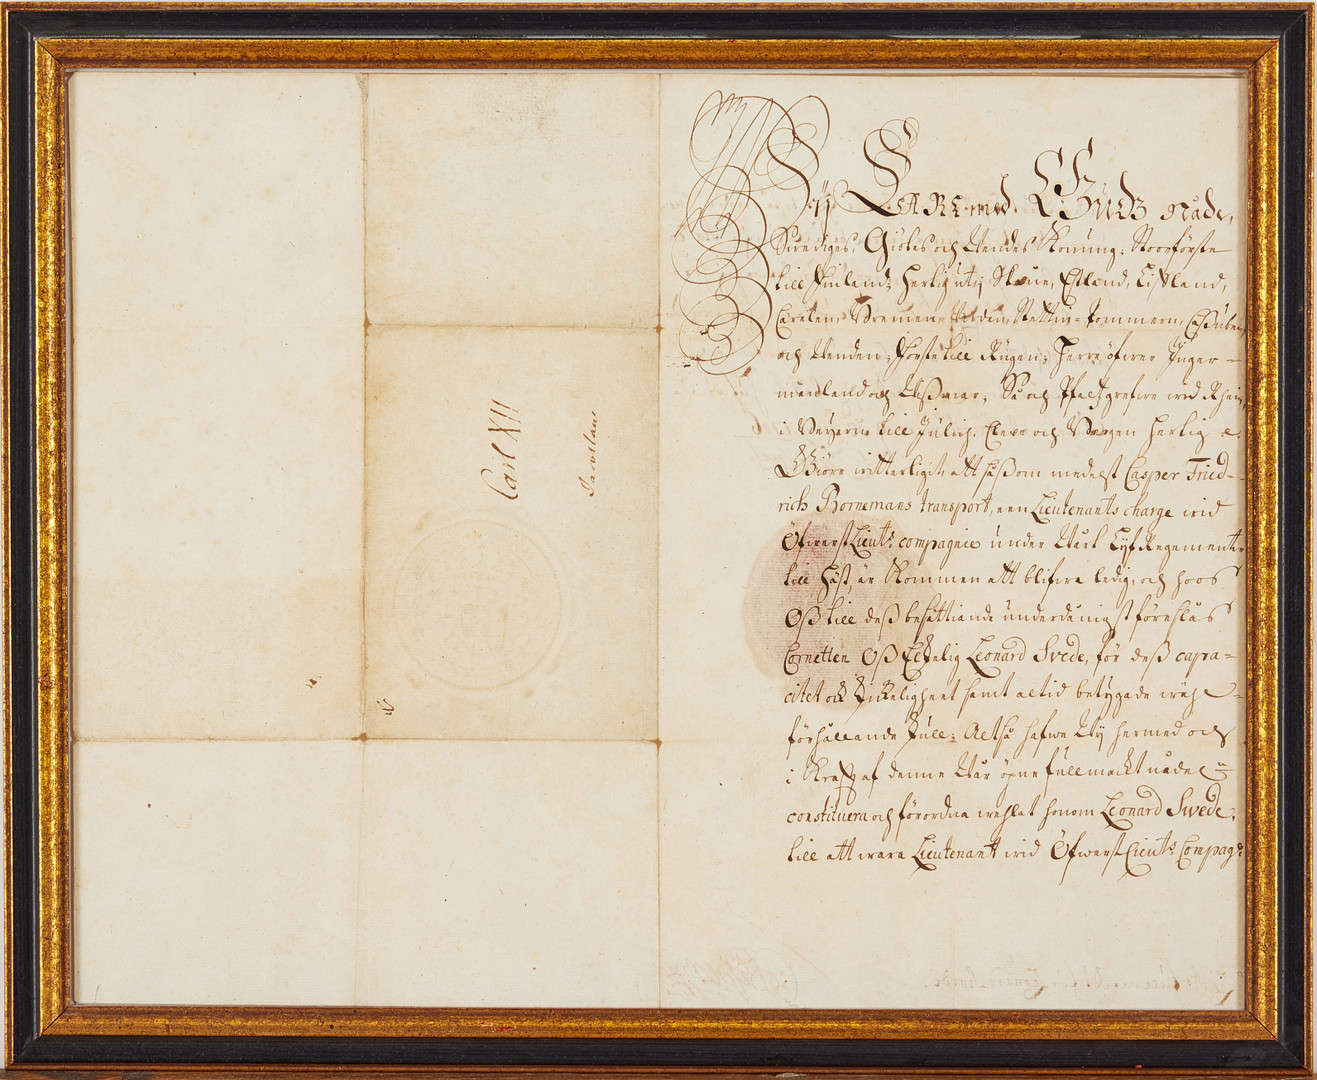 Carl XII
Jaroslau
Wij CARL med Gudz Nåde,
Swediges, Giötes och Wendes Konung, Storförste
till Finland, Hertig uti Skåne, Estland, Lifland,
Carelen, Bremen, Verden, Stettin-Pommern, Cassuben
och Wenden, Förste till Rügen, Herre öfwer Inger-
manland och Wißmar; Så och Pfaltzgrefwe wid Rhein,
i Beyern till Jülich, Cleve och Bergen Hertig &.
Giöre witterligit att såsom medelst Casper Fried-
rich Bornemans transport, een Lieutenants charge wid
ÖfwerstLieut:s compagnie under Wårt LijfRegemente
till Häst, är kommen att blifwa ledig, och hoos
Oß till deß besättiande underdånigst föreslås
Cornetten Oß Elskelig Leonard Svede, för deß capa-
citet och skickeligheet samt altid betygade wähl-
förhållande skull; Altså hafwe Wij hermed och
i krafft af denne Wår öpne fullmackt nådel:n
constituera och förordna welat honom Leonard Swede,
till att wara Lieutenant wid ÖfwerstLieut:s Compag:e